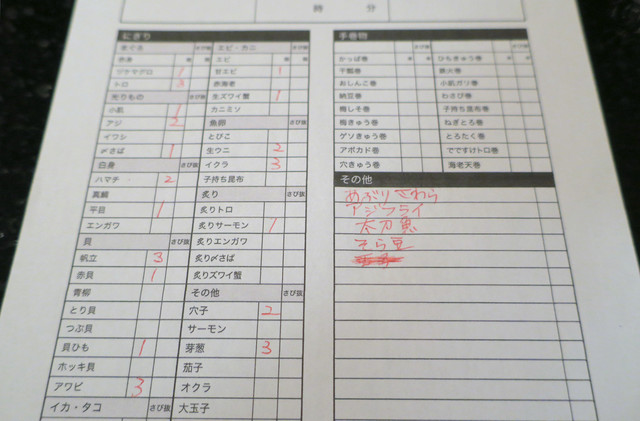 時 分
にぎり
まぐろ さび抜
赤身
ヅケマグロ 1
トロ 3
光りもの さび抜
小肌 1
アジ 2
イワシ
〆さば 1
白身 さび抜
ハマチ 2
真鯛
平目 1
エンガワ
貝 さび抜
帆立 3
赤貝 1
青柳
とり貝
つぶ貝
貝ひも 1
ホッキ貝
アワビ 3
イカ・タコ さび抜
エビ・カニ さび抜
エビ
甘エビ 1
赤海老
生ズワイ蟹 1
カニミソ
魚卵 さび抜
とびこ
生ウニ 2
イクラ 3
子持ち昆布
炙り さび抜
炙りトロ
炙りサーモン 1
炙りエンガワ
炙り〆さば
炙りズワイ蟹
その他 さび抜
穴子 2
サーモン
芽葱 3
茄子
オクラ
大玉子
手巻物
さび抜 さび抜
かっぱ巻 ひもきゅう巻
干瓢巻 鉄火巻
おしんこ巻 小肌ガリ巻
納豆巻 わさび巻
梅しそ巻 子持ち昆布巻
梅きゅう巻 ねぎとろ巻
ゲソきゅう巻 とろたく巻
アボカド巻 でですけトロ巻
穴きゅう巻 海老天巻
その他
あぶりさわら
アジフライ
太刀魚
そら豆